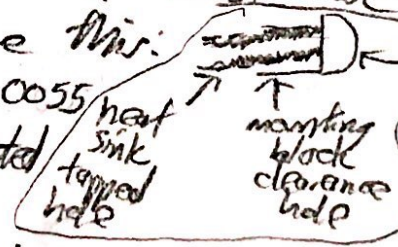 e this:
0055
ted
heat
sink
tapped
hole
mounting
block
clearance
hole